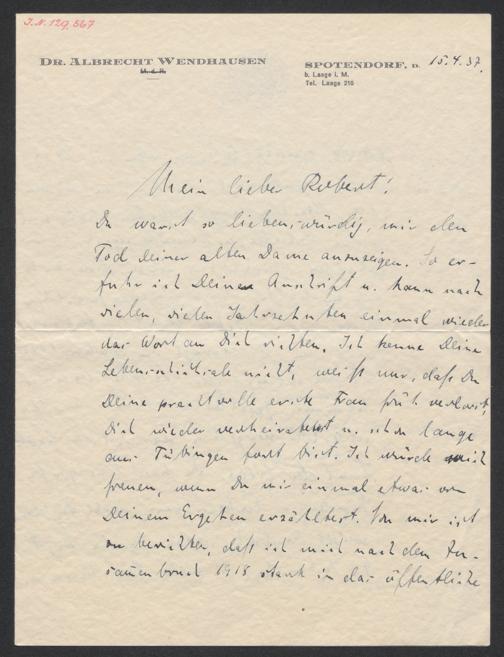 J.N. 129.567
DR. ALBRECHT WENDHAUSEN
M.d.R.
SPOTENDORF, D. 15.4.37.
b. Laage i. M.
Tel. Laage 216
Mein lieber Robert!
Du warst so liebenswürdig, mir den
Tod deiner alten Dame anzuzeigen. So er-
fuhr ich Deine Anschrift u. kann nach
vielen, vielen Jahrzehnten einmal wieder
das Wort an Dich richten. Ich kenne Deine
Lebensschicksale nicht, weiß nur, daß Du
Deine prachtvolle erste Frau früh verlorst,
Dich wieder verheiratet u. schon lange
aus Tübingen fort bist. Ich würde mich
freuen, wenn Du mir einmal etwas von
Deinem Ergehen erzähltest. Von mir ist
zu berichten, daß ich mich nach dem Zu-
sammenbruch 1918 stark in das öffentliche